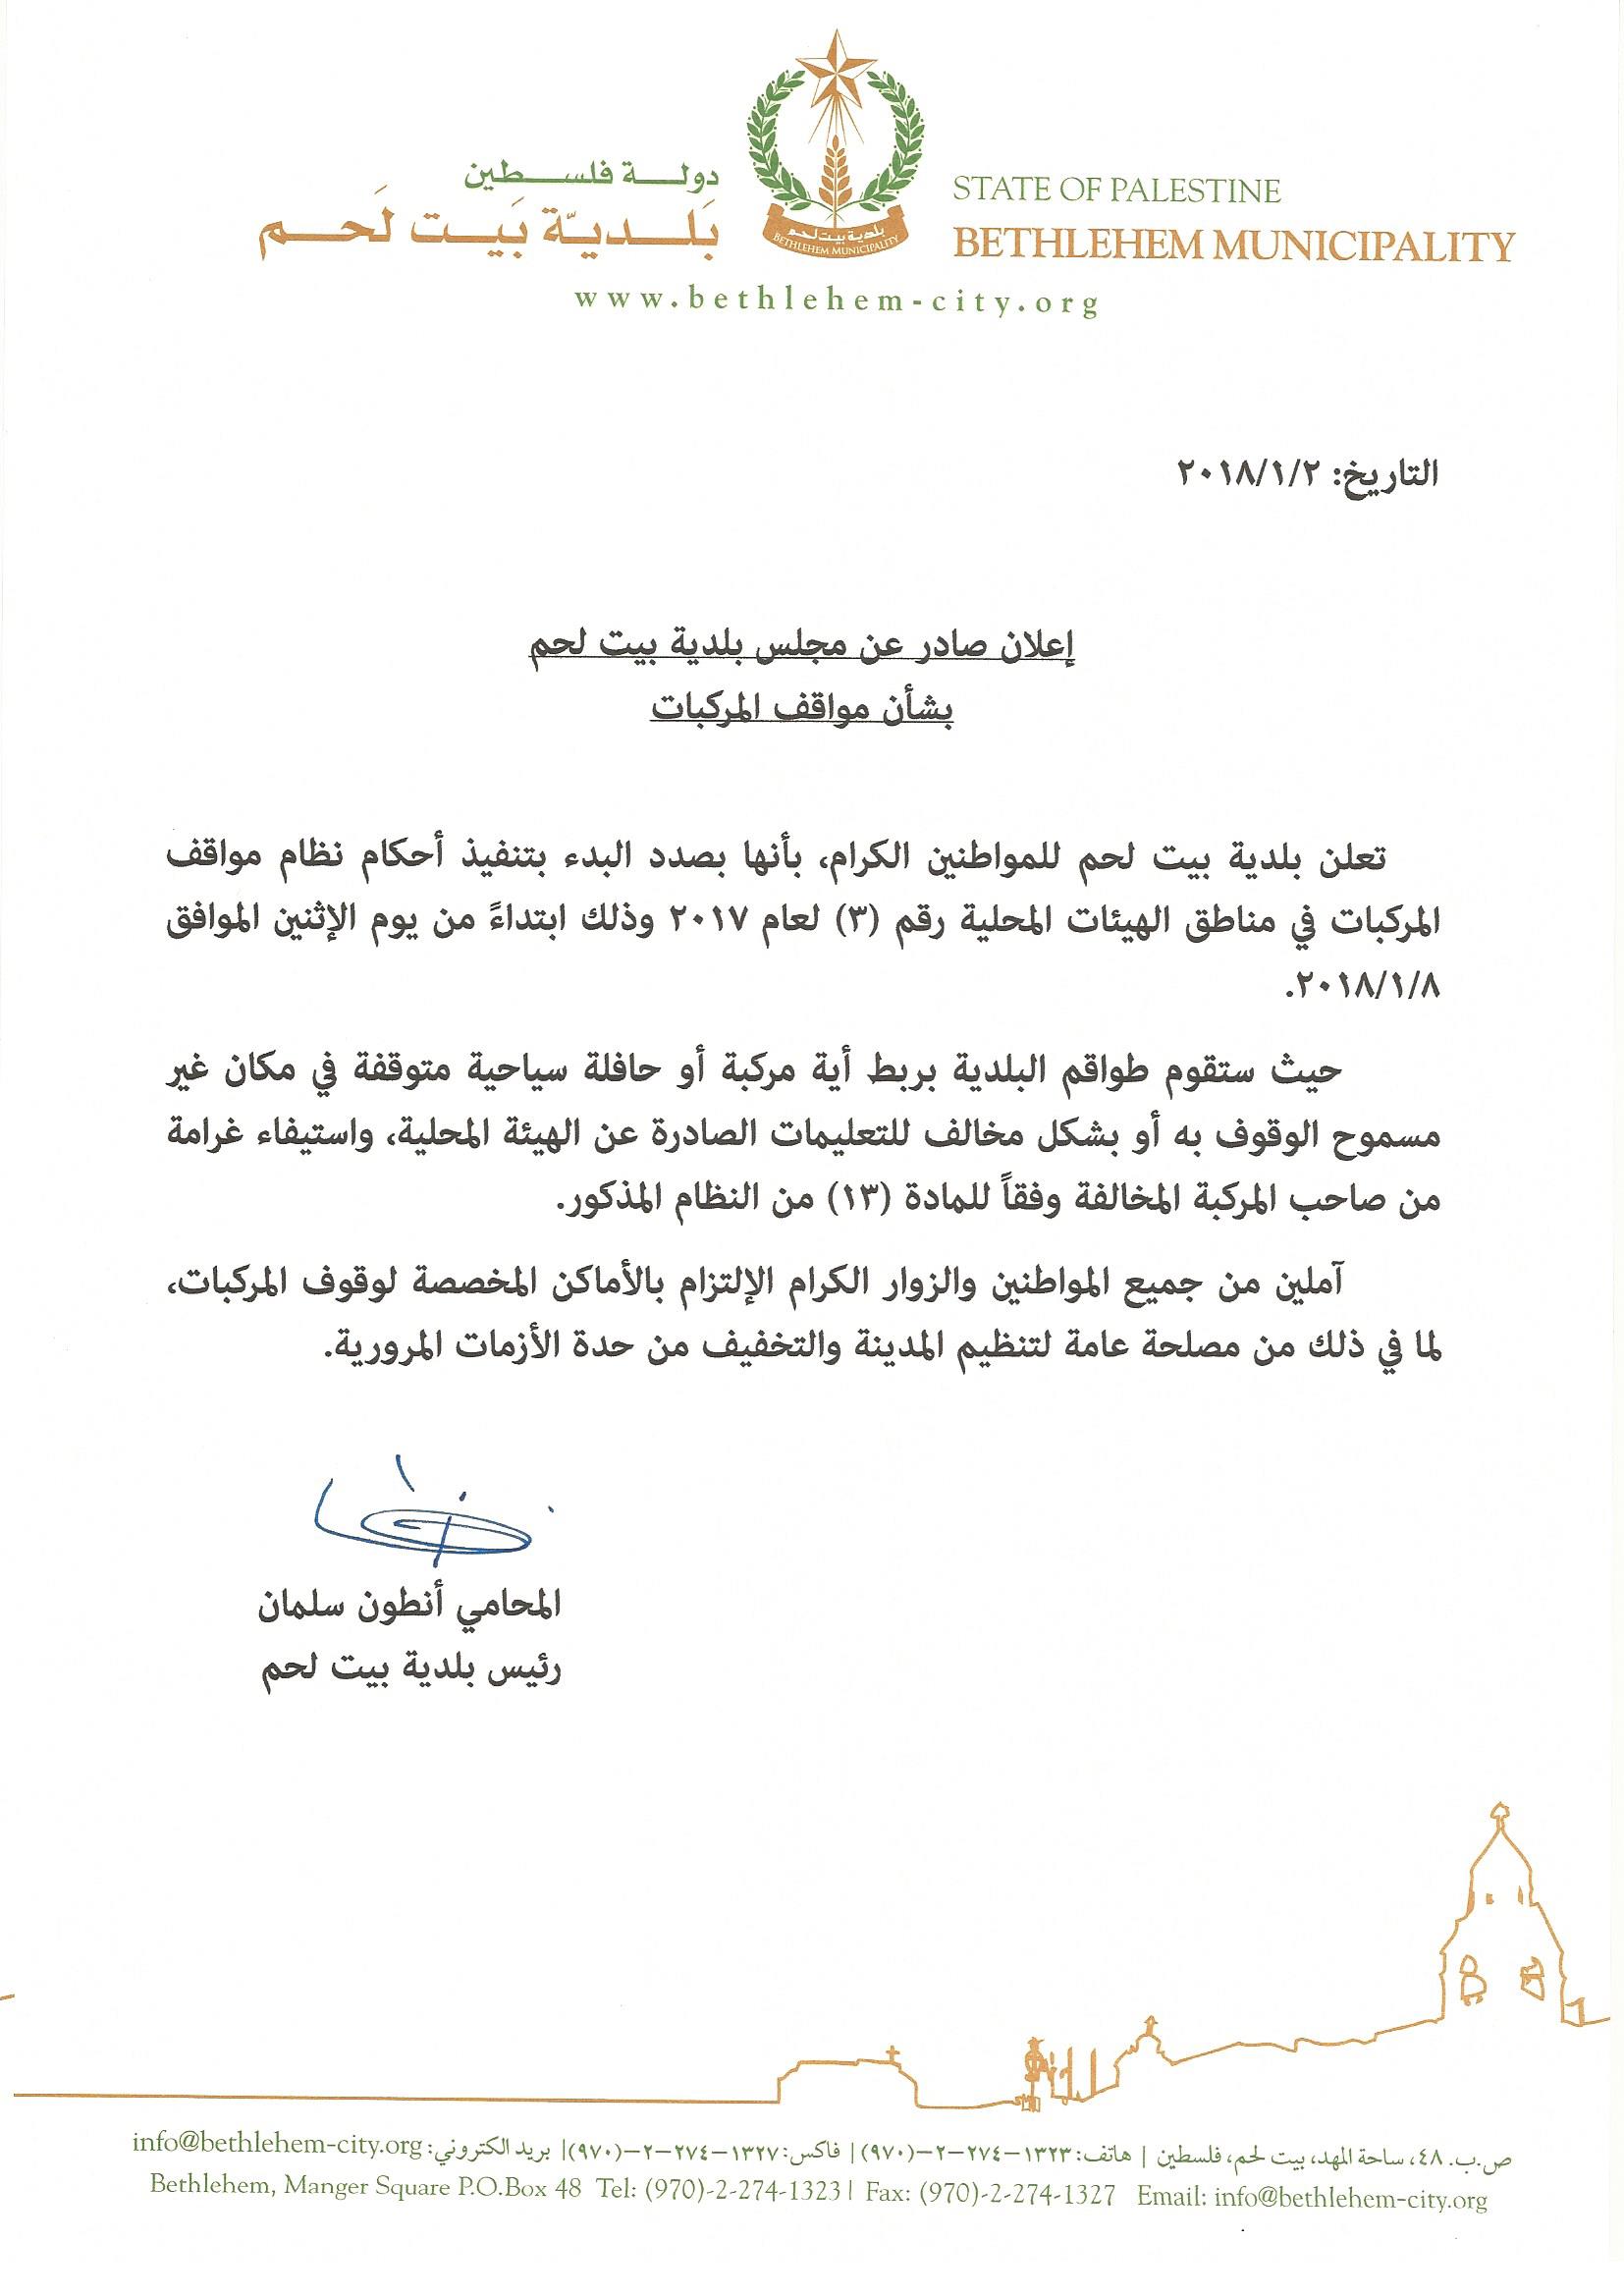 دولة فلسطين
بَلديّة بَيت لَحم
STATE OF PALESTINE
BETHLEHEM MUNICIPALITY
بلدية بيت لحم
BETHLEHEM MUNICIPALITY
www.bethlehem-city.org
التاريخ: ٢٠١٨/١/٢
إعلان صادر عن مجلس بلدية بيت لحم
بشأن مواقف المركبات
تعلن بلدية بيت لحم للمواطنين الكرام، بأنها بصدد البدء بتنفيذ أحكام نظام مواقف
المركبات في مناطق الهيئات المحلية رقم (٣) لعام ٢٠١٧ وذلك ابتداءً من يوم الإثنين الموافق
٢٠١٨/١/٨.
حيث ستقوم طواقم البلدية بربط أية مركبة أو حافلة سياحية متوقفة في مكان غير
مسموح الوقوف به أو بشكل مخالف للتعليمات الصادرة عن الهيئة المحلية، واستيفاء غرامة
من صاحب المركبة المخالفة وفقاً للمادة (١٣) من النظام المذكور.
آملين من جميع المواطنين والزوار الكرام الإلتزام بالأماكن المخصصة لوقوف المركبات،
لما في ذلك من مصلحة عامة لتنظيم المدينة والتخفيف من حدة الأزمات المرورية.
المحامي أنطون سلمان
رئيس بلدية بيت لحم
ص.ب. ٤٨، ساحة المهد، بيت لحم، فلسطين | هاتف: ١٣٢٣-٢٧٤-٢-(٩٧٠) | فاكس: ١٣٢٧-٢٧٤-٢-(٩٧٠)| بريد الكتروني: info@bethlehem-city.org
Bethlehem, Manger Square P.O.Box 48 Tel: (970)-2-274-1323 | Fax: (970)-2-274-1327 Email: info@bethlehem-city.org